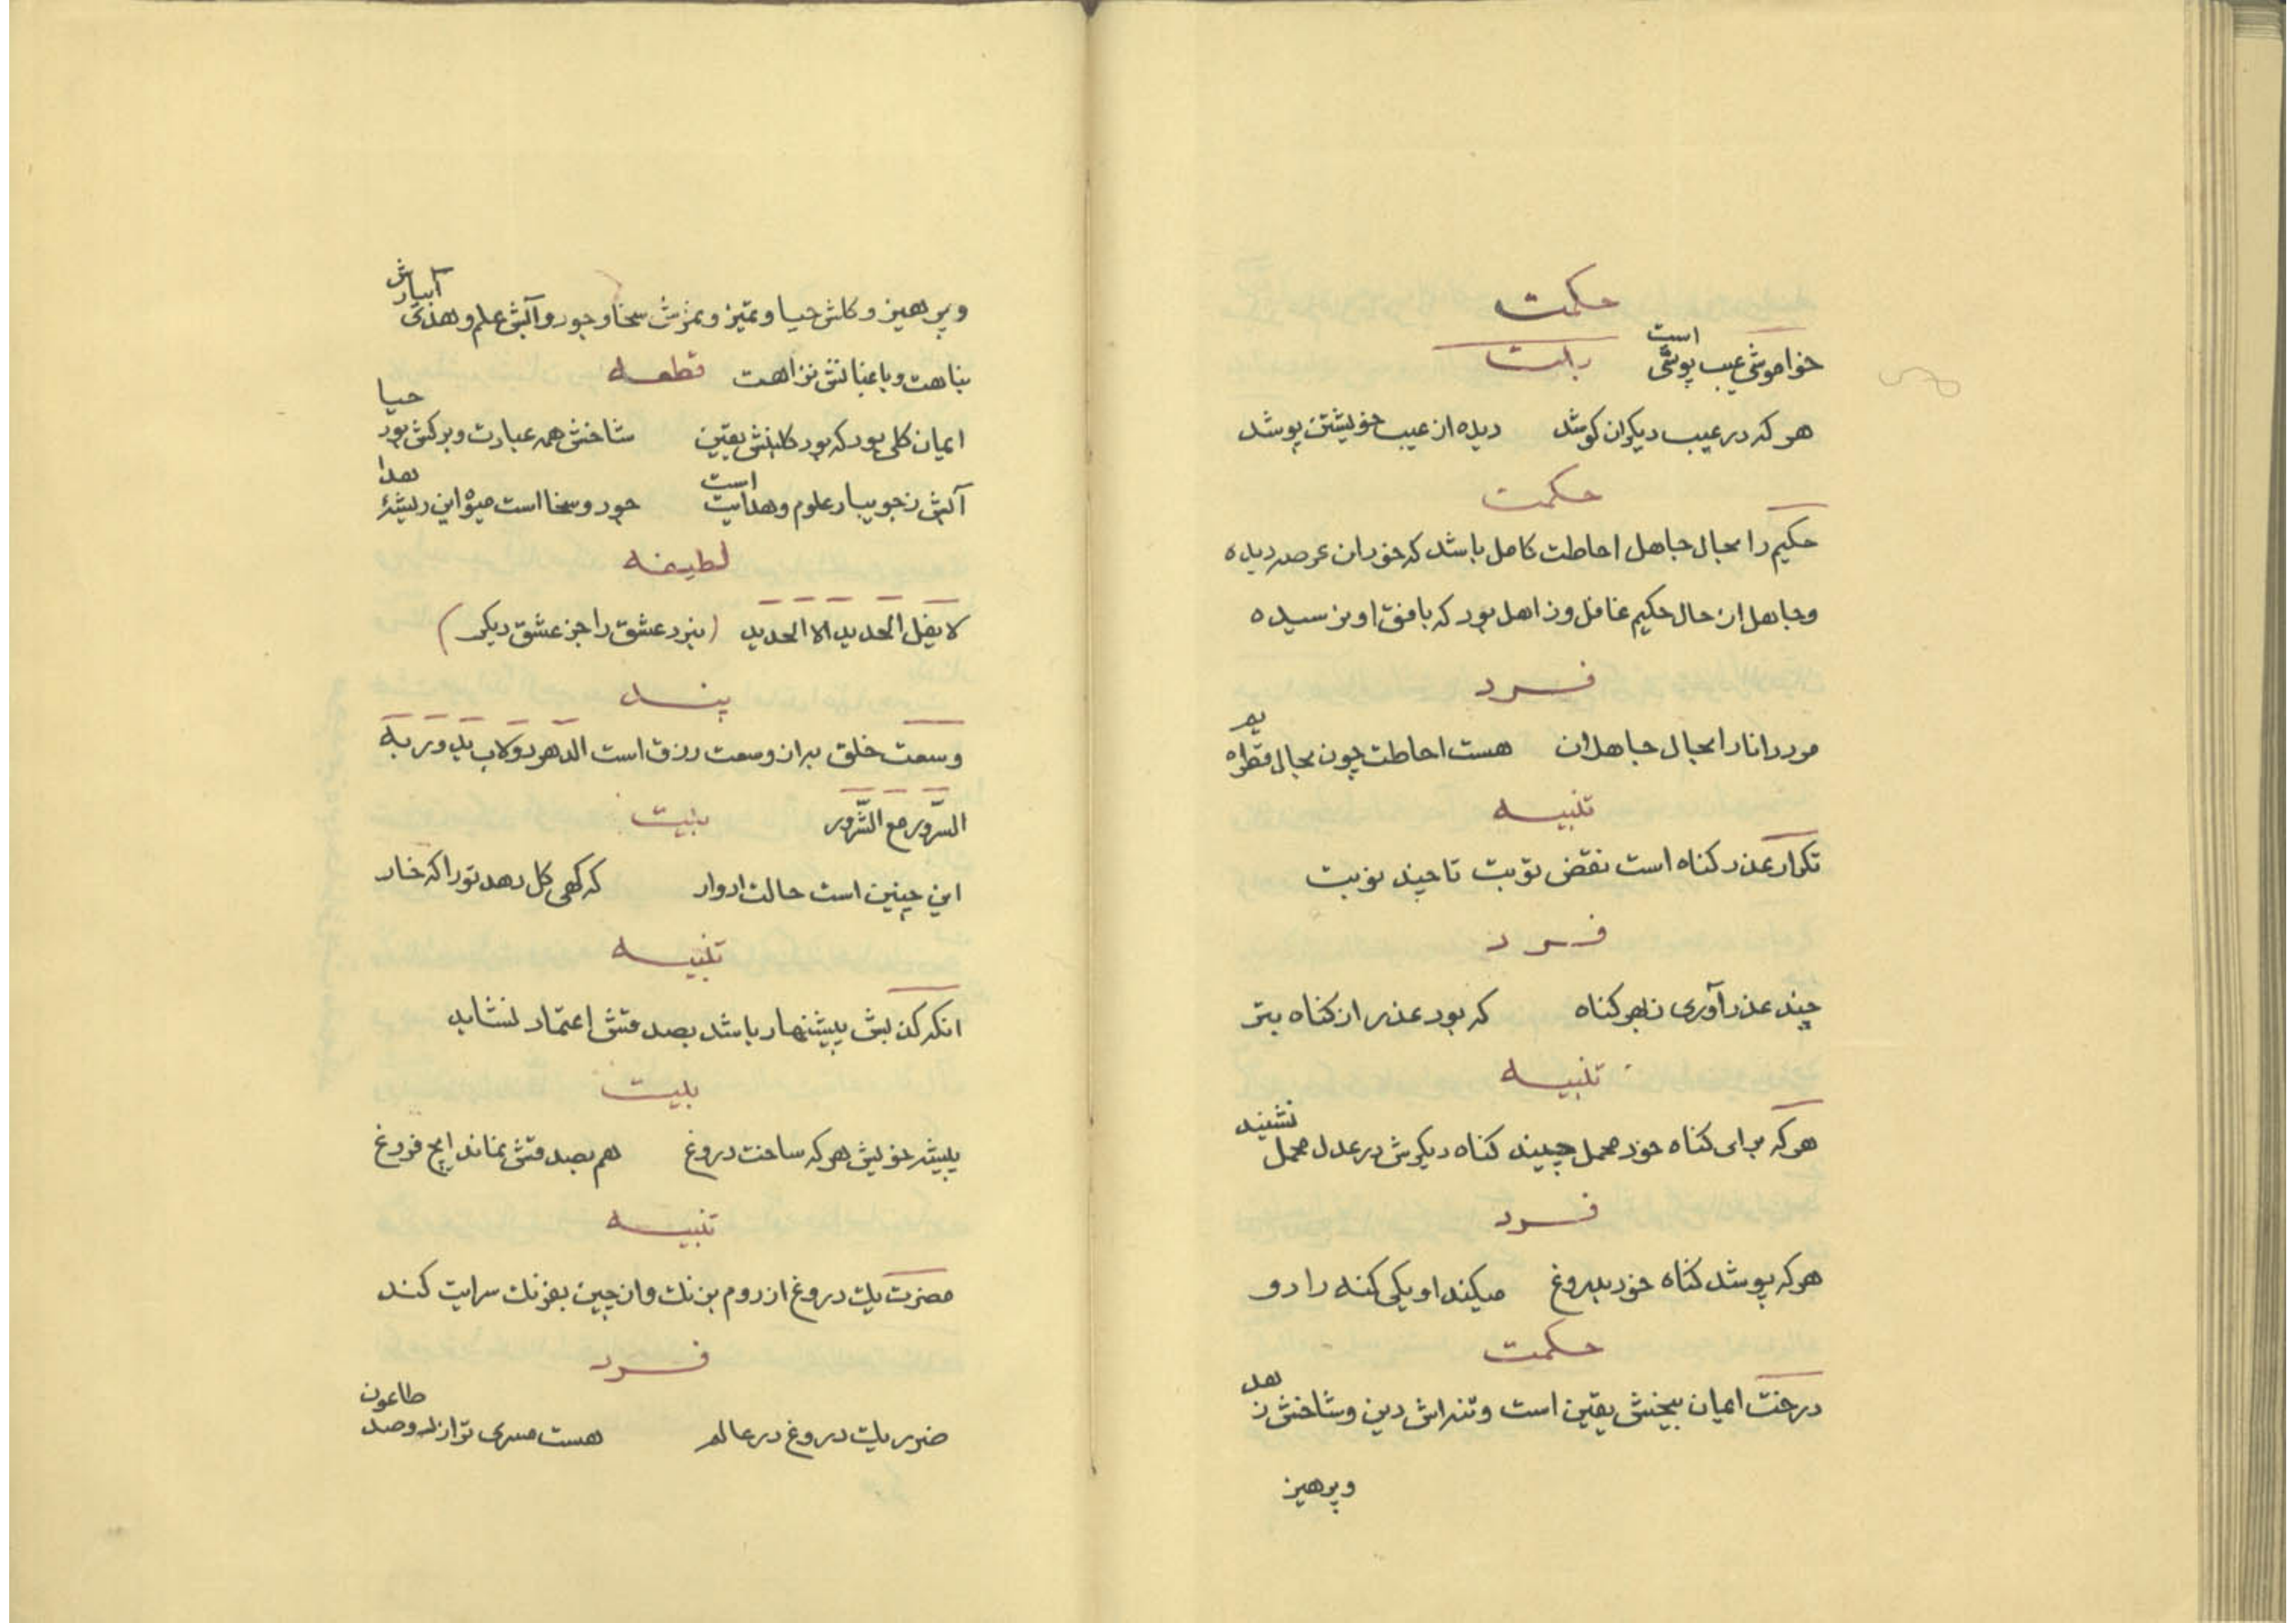 حکمت
خواموشی عیب پوشی است بیت
هر که در عیب دیکران کوشد دیده از عیب خویشتن پوشد
حکمت
حکیم را بحال جاهل احاطت کامل باشد که خود ان عرصه دیده
وجاهل از حال حکیم غافل و ذاهل بود که بافق او نرسیده
فرد
مرد دانا را بحال جاهلان هست احاطت چون بحال قطره یم
تنبیه
تکرار عذر کناه است نقض توبت تا چند نوبت
فرد
چند عذر آوری ز هر کناه که بود عذر از کناه بتر
تنبیه
هر که برای کناه خود محمل چیند کناه دیکرش در عدل محمل نشیند
فرد
هر که پوشد کناه خود بدروغ میکند او یکی کنه را دو
حکمت
درخت ایمان بیخش یقین است و تنه اش دین و شاخش زهد
وپرهیز
وپرهیز و کلش حیا و تمیز و ثمرش سخا و جود و آبش علم و هدی آبیارش
بناهت و باغبانش نزاهت قطعه
ایمان کلی بود که بود کلبنش یقین شاخش همه عبادت و برکش بود حیا
آبش ز جویبار علوم و هدایت است جود و سخا است میوه این ریشهٔ هدا
لطیفه
لا یفل الحدید الا الحدید (نبرد عشق را جز عشق دیکر)
پند
وسعت خلق به از وسعت رزق است الدهر دولاب یدور به
السّرور مع الشّرور بیت
این چنین است حالت ادوار که کهی کل دهد تو را که خار
تنبیه
انکه کذبش پیشنهاد باشد بصدقش اعتماد نشاید
بیت
پیشه خویش هر که ساخت دروغ هم بصدقش نماند ایچ فروغ
تنبیه
مضرت یک دروغ از روم بزنک و از چین بفرنک سرایت کند
فرد
ضرر یک دروغ در عالم هست مسری تر از دو صد طاعون